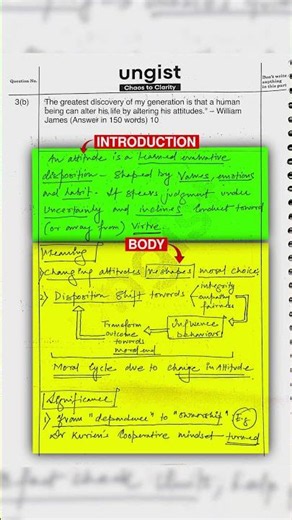 ungist
Chaos to Clarity
Question No.
Don't write
anything
in this part
3(b)
"The greatest discovery of my generation is that a human
being can alter his life by altering his attitudes." – William
James (Answer in 150 words) 10
INTRODUCTION
An attitude is a learned evaluative
disposition - Shaped by Values, emotions
and habit. It steers judgment under
Uncertainty and inclines conduct toward
(or away from) Virtue.
BODY
Meaning
1) Changing attitudes reshapes moral choices
2) Disposition Shift towards
integrity
fairness
Influence
behaviors
Transform
outcome
towards
moral end
Moral Cycle due to change in Attitude
Significance
1) From "dependence" to "ownership" E.g
Dr Kurien's Cooperative mindset - turned